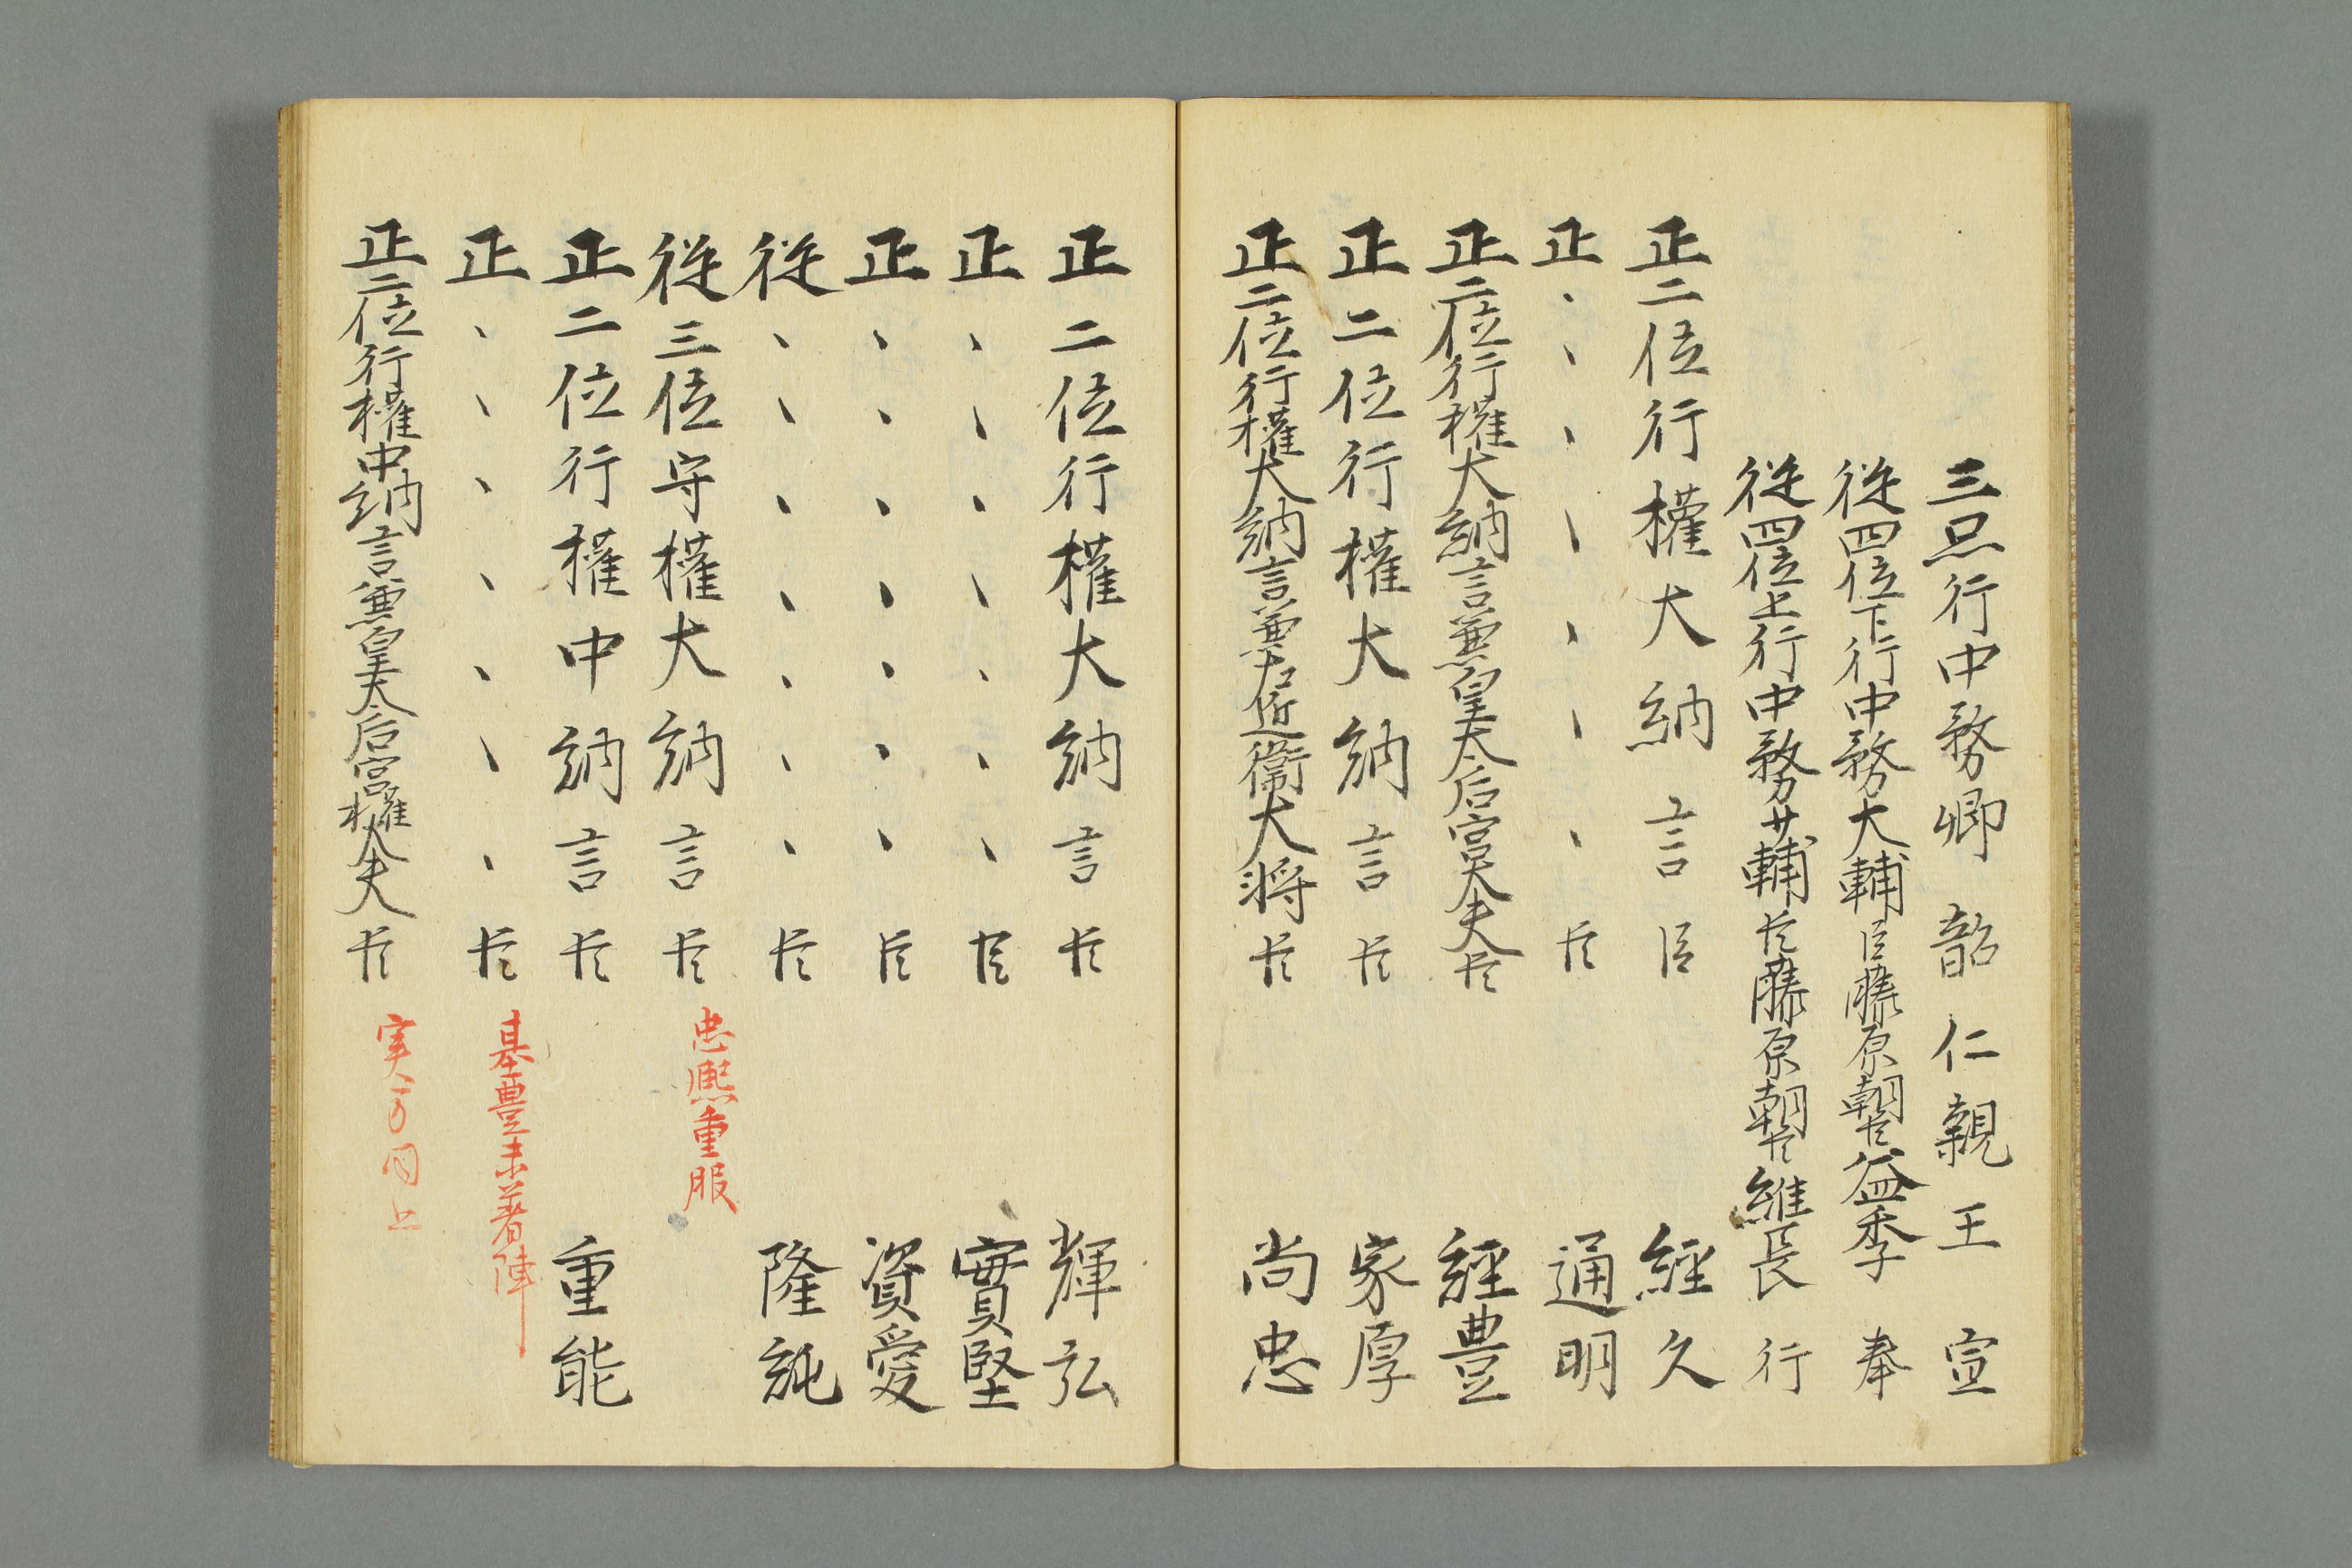 三品行中務卿韶仁親王宣
従四位下行中務大輔臣藤原朝臣益季奉
従四位上行中務少輔臣藤原朝臣維長行
正二位行權大納言臣經久
正、、、、、、、臣通明
正二位行權大納言兼皇太后宮大夫臣經豊
正二位行權大納言臣家厚
正二位行權大納言兼右近衛大将臣尚忠
正二位行權大納言臣輝弘
正、、、、、、、臣實堅
正、、、、、、、臣資愛
従、、、、、、、臣隆純
従三位守權大納言臣忠熈重服
正二位行權中納言臣重能
正、、、、、、、臣基豊未著陣
正二位行權中納言兼皇太后宮權大夫臣実万同上